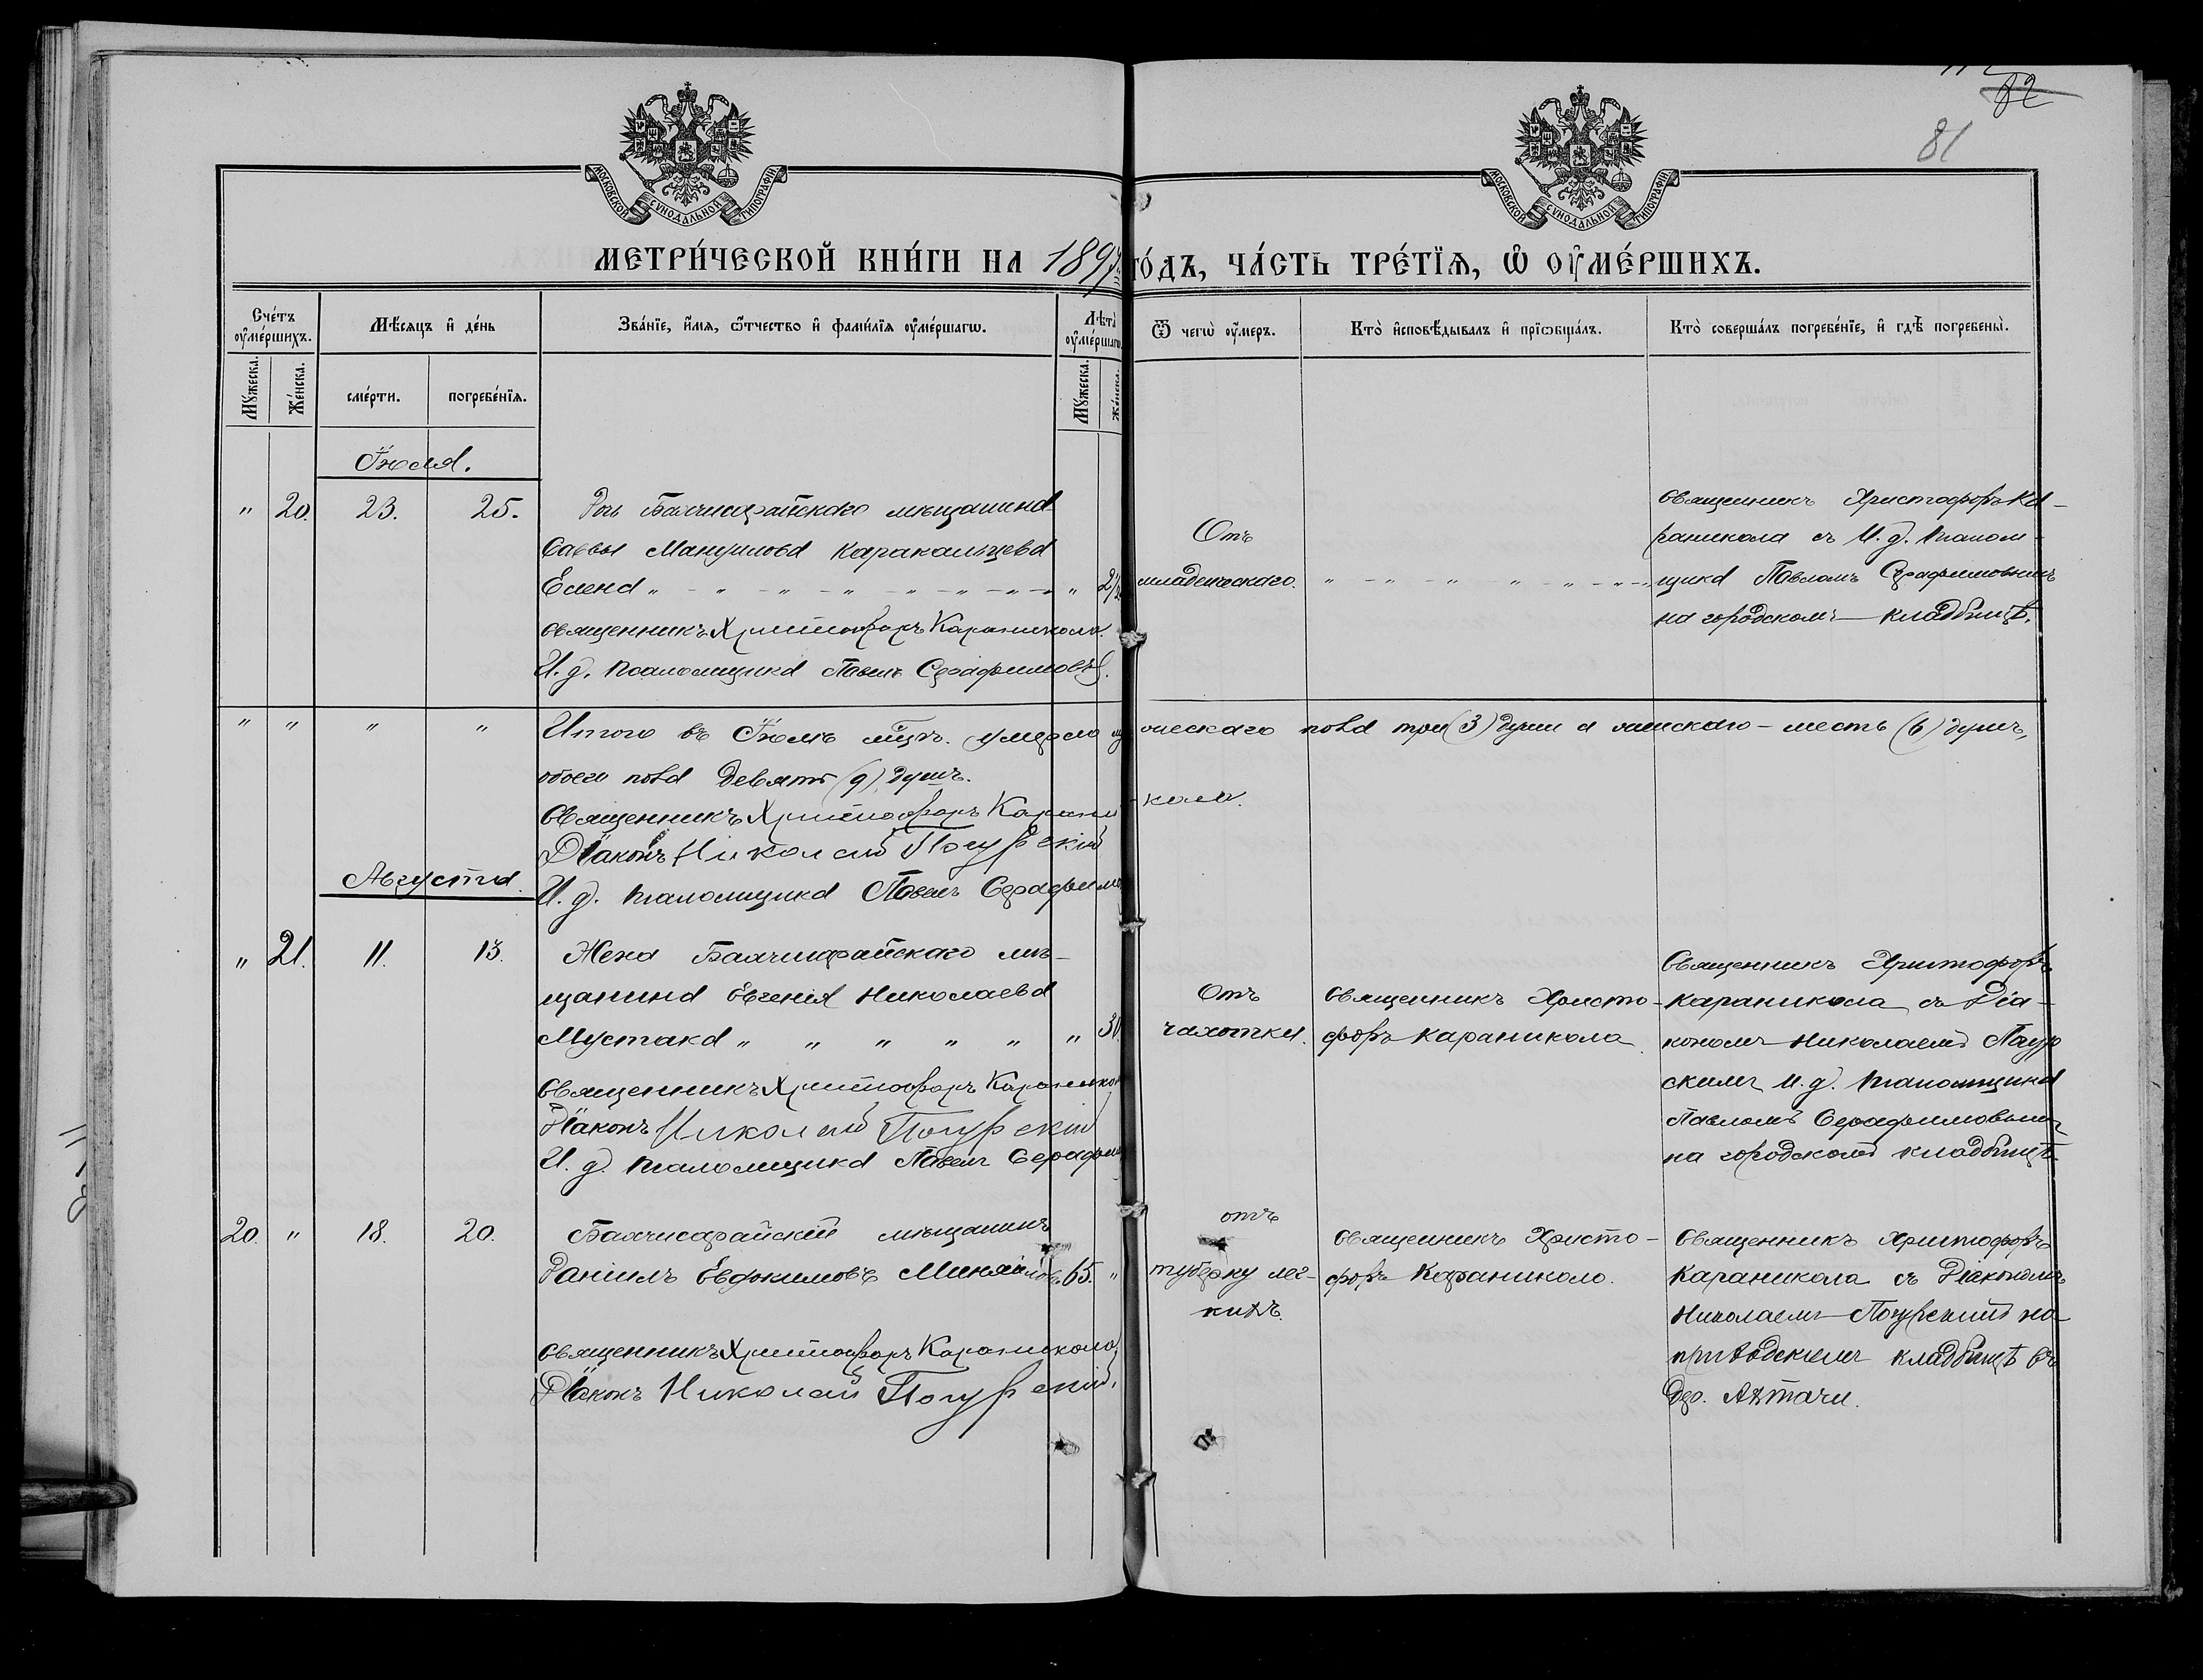 82
81
МОСКОВСКОЙ СѴНОДАЛЬНОЙ ТИПОГРАФІИ
МОСКОВСКОЙ СѴНОДАЛЬНОЙ ТИПОГРАФІИ
МЕТРИ́ЧЕСКОЙ КНИ́ГИ НА 1897 ГО́ДЪ, ЧА́СТЬ ТРЕ́ТЇѦ, Ѡ ОУ҆МЕ́РШИХЪ.
Сче́тъ оу҆ме́ршихъ.
Мѣ́сяцъ и҆ де́нь
Зва́нїе, и҆́мѧ, ѻ҆́тчество и҆ фами́лїѧ оу҆ме́ршагѡ.
Лѣ̀та оу҆ме́ршагѡ
Ѿ чегѡ̀ оу҆́меръ.
Кто̀ и҆сповѣ́дывалъ и҆ прїѡбща́лъ.
Кто̀ соверша́лъ погребе́нїе, и҆ гдѣ̀ погребены̀.
Мꙋ́жеска.
Же́нска.
сме́рти.
погребе́нїѧ.
Мꙋ́жеска.
Же́нска.
Іюля.
" 20. 23. 25.
Дочь Бахчисарайскаго мѣщанина
Саввы Мануилова Каракальцева
Елена " - " - " - " - " - " " 2½
Священникъ Христофоръ Караникола.
И. д. псаломщика Павелъ Серафимовъ.
Отъ
младенческаго.
" - " - " - " - " - "
Священникъ Христофоръ Ка-
раникола съ И. д. псалом-
щика Павломъ Серафимовымъ
на городскомъ кладбищѣ.
" " " "
Итого въ Іюлѣ мцѣ. умерло мужескаго пола три (3) души и женскаго – шесть (6) душъ,
обоего пола девять (9) душъ.
Священникъ Христофоръ Карани-кола.
Діаконъ Николай
И. д. псаломщика Павелъ Серафимо
Августа.
" 21. 11. 13.
Жена Бахчисарайскаго мѣ-
щанина Евгенія Николаева
Мустака " " " " " " 30.
Священникъ Христофоръ Караникол
Діаконъ Николай
И. д. псаломщика Павелъ Серафим
Отъ
чахотки.
Священникъ Христо-
форъ Караникола.
Священникъ Христофоръ
Караникола съ Діа-
кономъ Николаемъ
скимъ И. д. псаломщика
Павломъ Серафимовымъ
на городскомъ кладбищѣ
20. " 18. 20.
Бахчисарайскій мѣщанинъ
Даніилъ Евфимовъ Михайловъ 65. "
Священникъ Христофоръ Караникола,
Діаконъ Николай
отъ
туберку лег-
кихъ.
Священникъ Христо-
форъ Караникола.
Священникъ Христофоръ
Караникола съ Діакономъ
Николаемъ на
приходскомъ кладбищѣ въ
дер. Ахтачи.